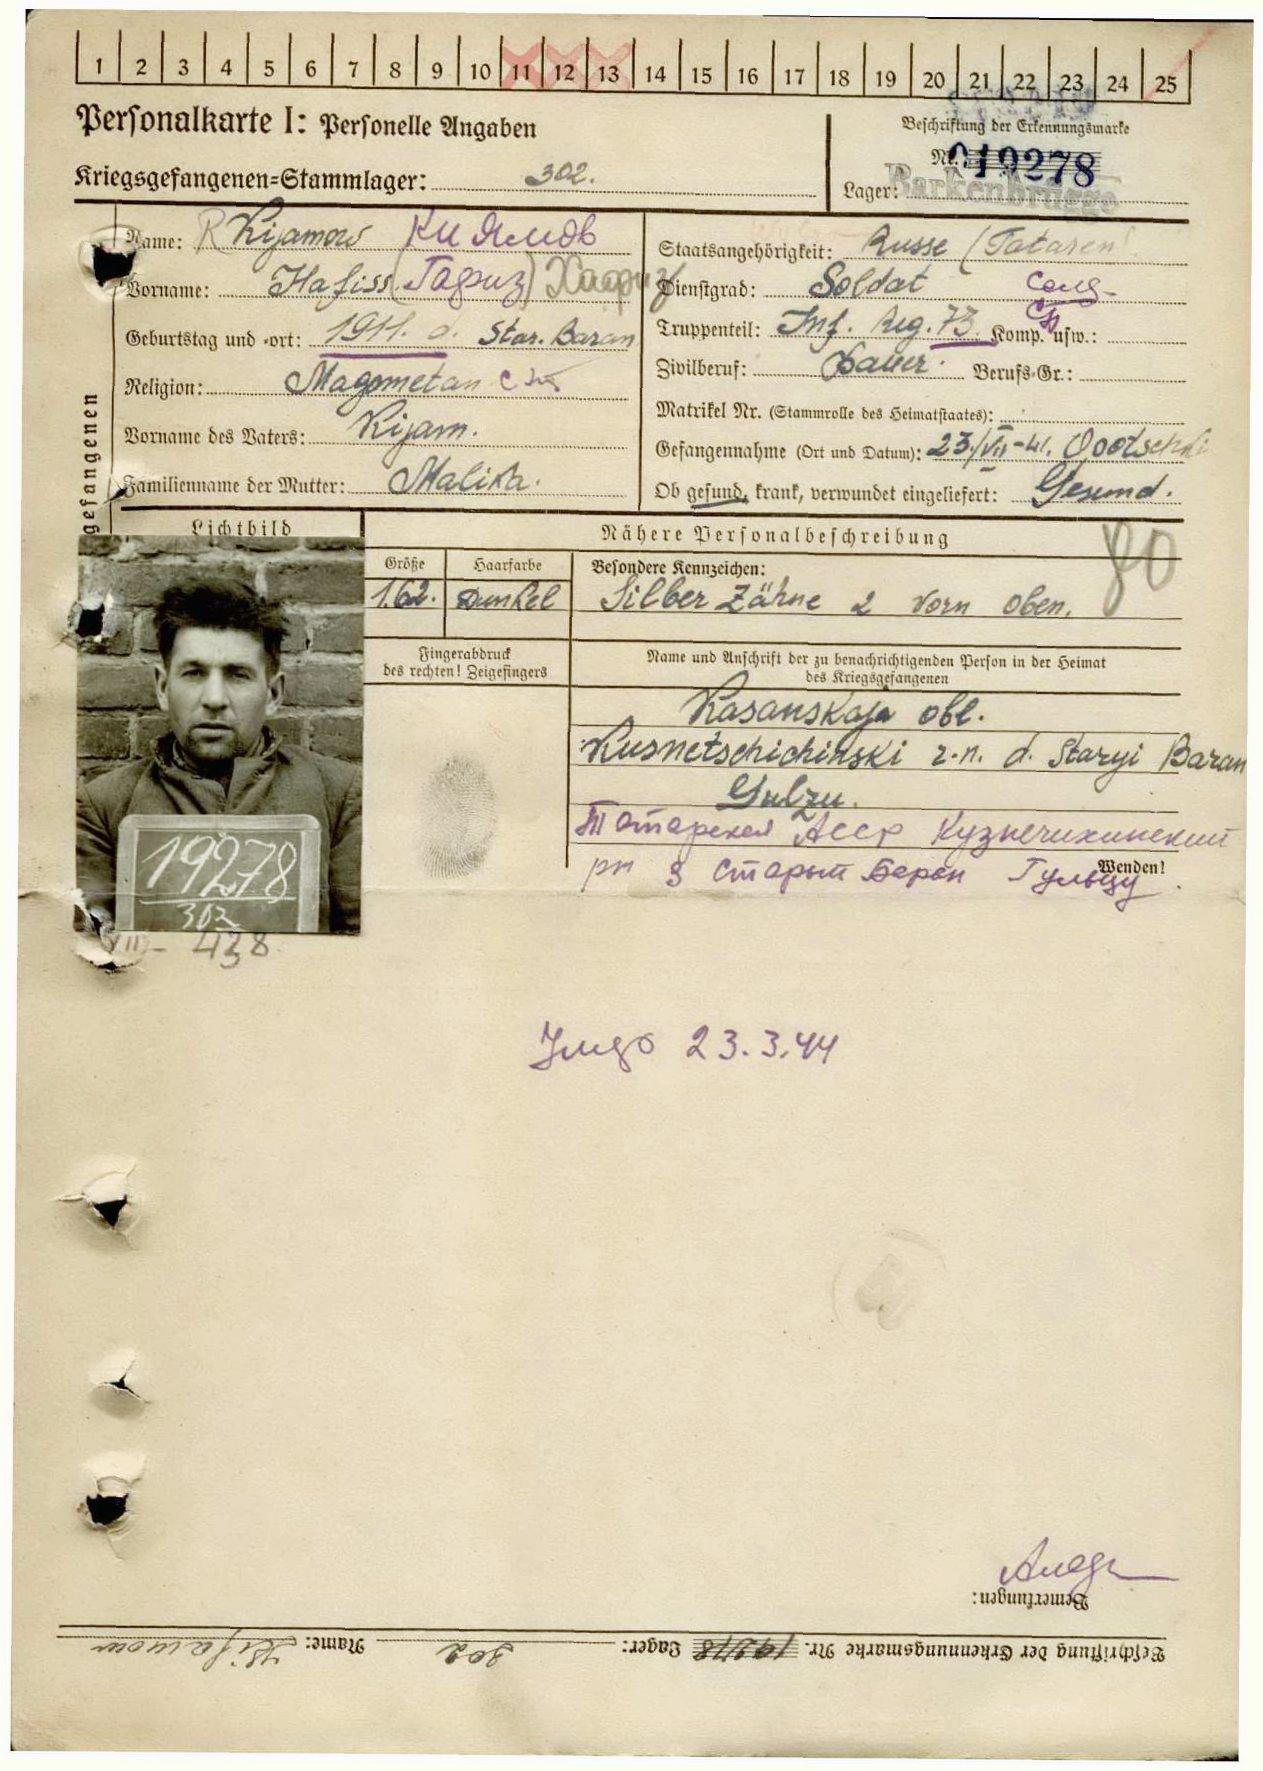 1 2 3 4 5 6 7 8 9 10 11 12 13 14 15 16 17 18 19 20 21 22 23 24 25
Personalkarte I: Personelle Angaben
Kriegsgefangenen=Stammlager: 302.
Beschriftung der Erkennungsmarke
Nr. 019278
Lager: Barkenbrügge
gefangenen
Name: R Kijamow Киямов
Vorname: Hafiss (Гафиз) Хафиз
Geburtstag und -ort: 1911. d. Star. Baran
Religion: Magometan
Vorname des Vaters: Kijam.
Familienname der Mutter: Malika.
Staatsangehörigkeit: Russe (Tataren)
Dienstgrad: Soldat солд
Truppenteil: Inf. Reg. 73. Komp. usw.:
Zivilberuf: Bauer. Berufs-Gr.:
Matrikel Nr. (Stammrolle des Heimatstaates):
Gefangennahme (Ort und Datum): 23./VII-41.
Ob gesund, krank, verwundet eingeliefert: Gesund.
Lichtbild
Nähere Personalbeschreibung
80
Größe
Haarfarbe
Besondere Kennzeichen:
1.62. Dunkel
Silber Zähne 2 vorn oben.
Fingerabdruck
des rechten! Zeigefingers
Name und Anschrift der zu benachrichtigenden Person in der Heimat
des Kriegsgefangenen
Kasanskaja obl.
Kusnetschichinski r-n. d. Staryi Baran
Gulzu.
Татарская АССР Кузнечихинский
рн д Старый Баран Гульцу
Wenden!
19278
302
VII - 438
23.3.44
Bemerkungen:
Beschriftung der Erkennungsmarke Nr. 19278 Lager: 302 Name: Kijamow